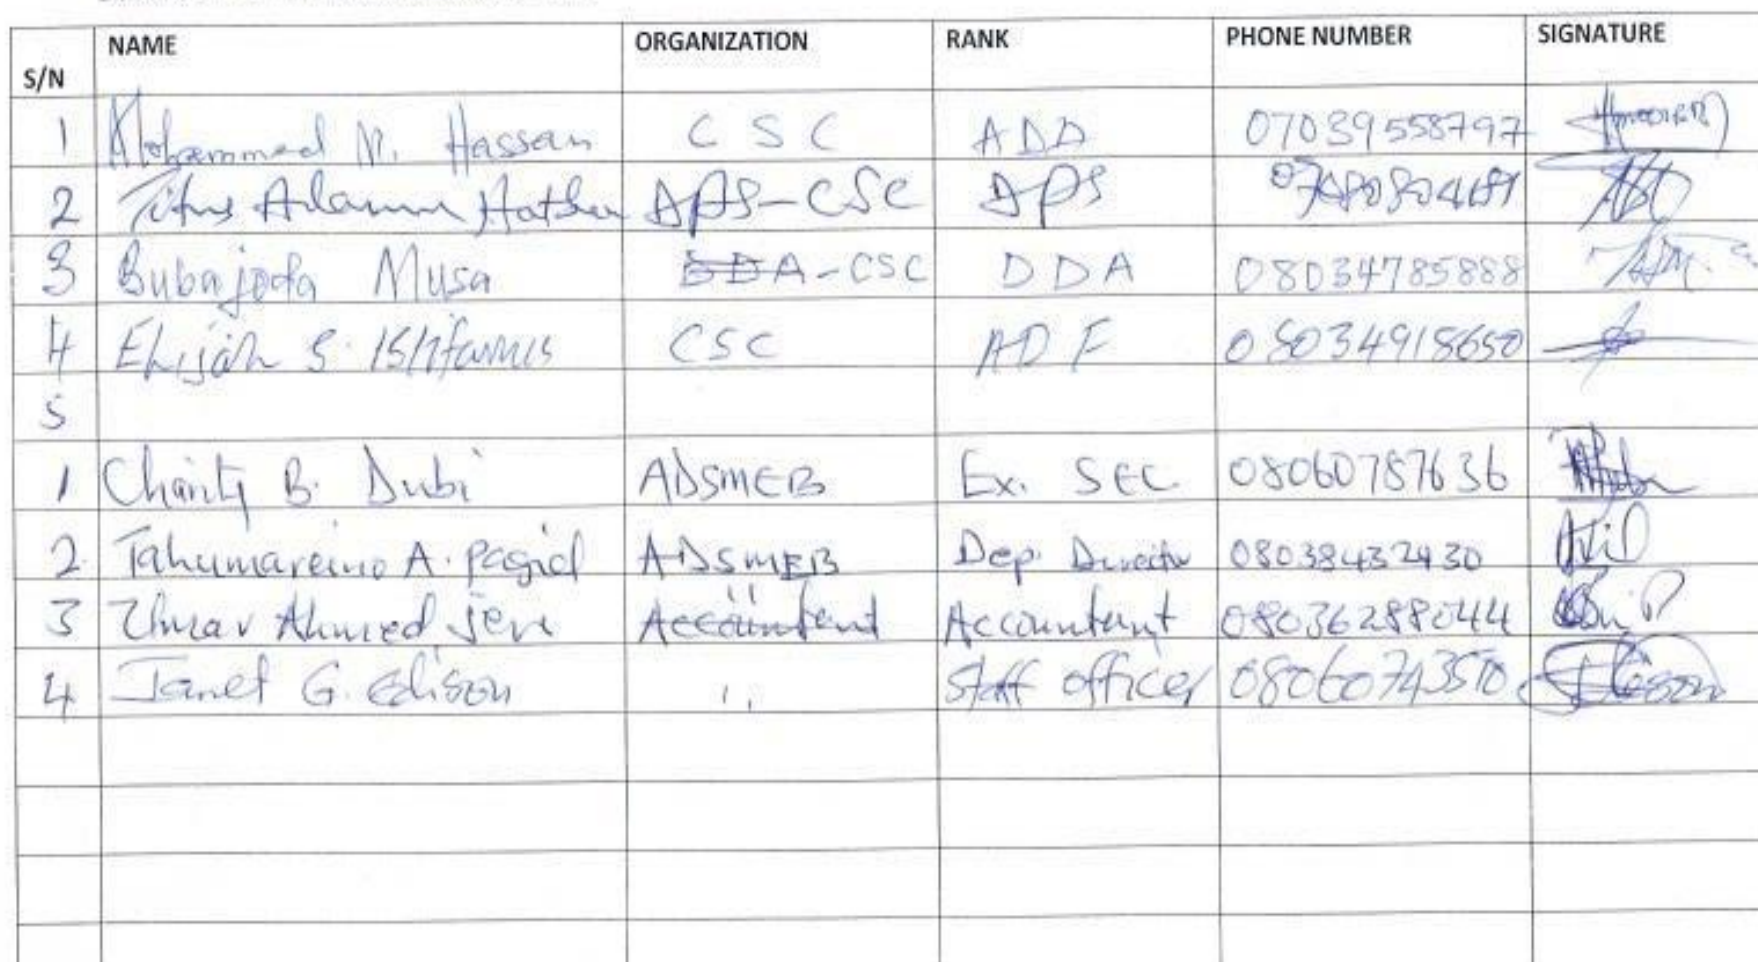 S/N NAME ORGANIZATION RANK PHONE NUMBER SIGNATURE
1 Mohammed N. Hassan CSC ADA 07039558797
2 Titus Adamu DPS-CSC DPS
3 Bubajoda Musa DDA-CSC DDA 08034785888
4 Elijah S. Istifanus CSC ADF 08034918650
5
1 Charity B. Dubi ADSMEB Ex. SEC. 08060787636
2 Tahumareino A. Pagiel ADSMEB Dep. Director 08038432430
3 Umar Ahmed Jen Accountant " Accountant 08036288044
4 Janet G. Edison " Staff officer 08060743570 Edison